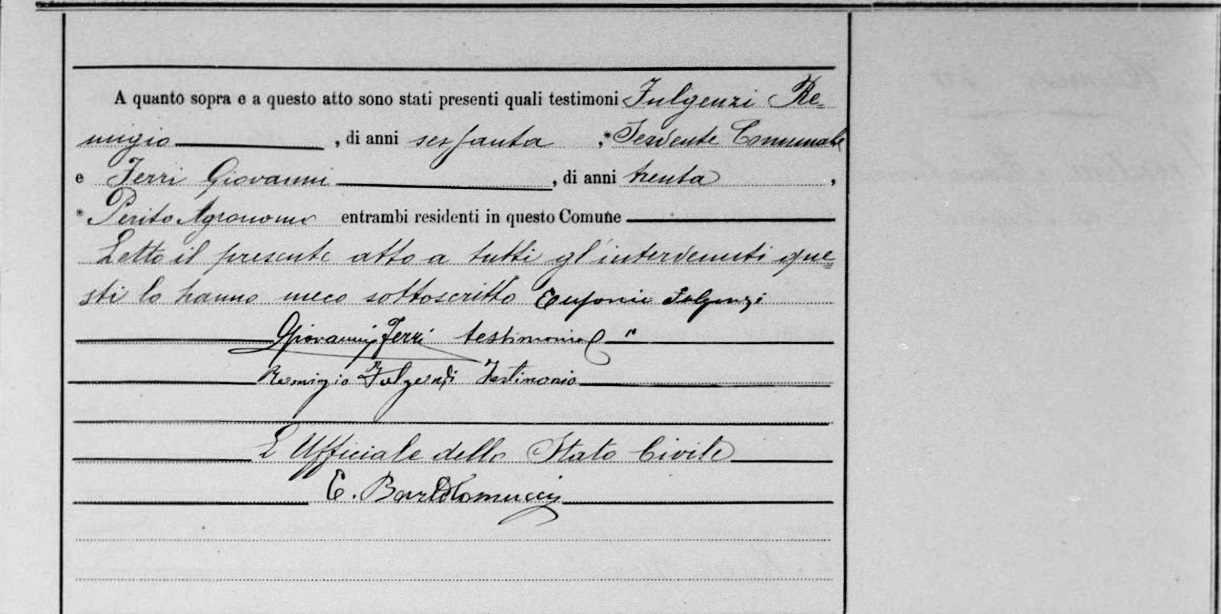 A quanto sopra e a questo atto sono stati presenti quali testimoni Fulgenzi Re=
migio , di anni sessanta , *Serdente Comunale
e Ferri Giovanni , di anni trenta ,
* Perito Agronomo entrambi residenti in questo Comune
Letto il presente atto a tutti gl'intervenuti que=
sti lo hanno meco sottoscritto Eufonio Fulgenzi
Giovanni Ferri testimonio "
Remigio Fulgenzi Testimonio
L'Ufficiale dello Stato Civile
E. Bartolomucci